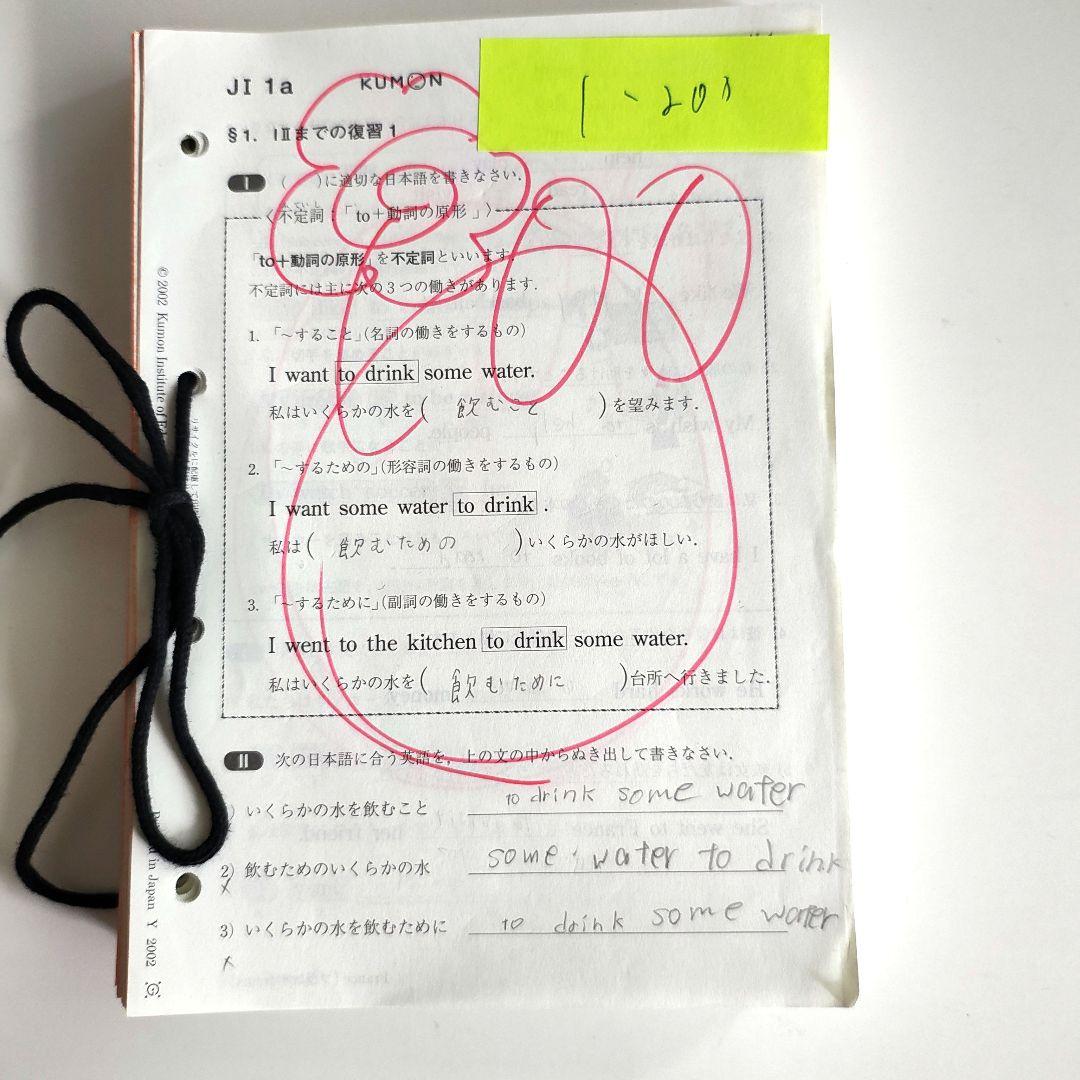 JI 1a KUMON
1~200
§1. IⅡまでの復習1
Ⅰ ( )に適切な日本語を書きなさい.
〈不定詞:「to+動詞の原形」〉
「to+動詞の原形」を不定詞といいます.
不定詞には主に次の3つの働きがあります.
1. 「~すること」(名詞の働きをするもの)
I want to drink some water.
私はいくらかの水を( 飲むこと )を望みます.
2. 「~するための」(形容詞の働きをするもの)
I want some water to drink .
私は( 飲むための )いくらかの水がほしい.
3. 「~するために」(副詞の働きをするもの)
I went to the kitchen to drink some water.
私はいくらかの水を( 飲むために )台所へ行きました.
Ⅱ 次の日本語に合う英語を, 上の文の中からぬき出して書きなさい.
1) いくらかの水を飲むこと to drink some water
2) 飲むためのいくらかの水 some water to drink
3) いくらかの水を飲むために to drink some water
© 2002 Kumon Institute of
in Japan Y 2002
100